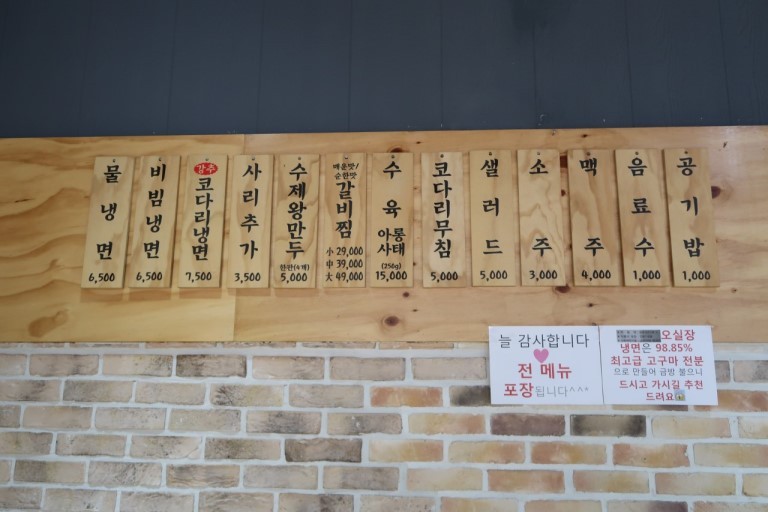 물냉면
6,500
비빔냉면
6,500
강추
코다리냉면
7,500
사리추가
3,500
수제왕만두
한판(4개)
5,000
매운맛/
순한맛
갈비찜
小 29,000
中 39,000
大 49,000
수육
아롱
사태
(250g)
15,000
코다리무침
5,000
샐러드
5,000
소주
3,000
맥주
4,000
음료수
1,000
공기밥
1,000
늘 감사합니다
전 메뉴
포장됩니다^^*
오실장
냉면은 98.85%
최고급 고구마 전분
으로 만들어 금방 불으니
드시고 가시길 추천
드려요